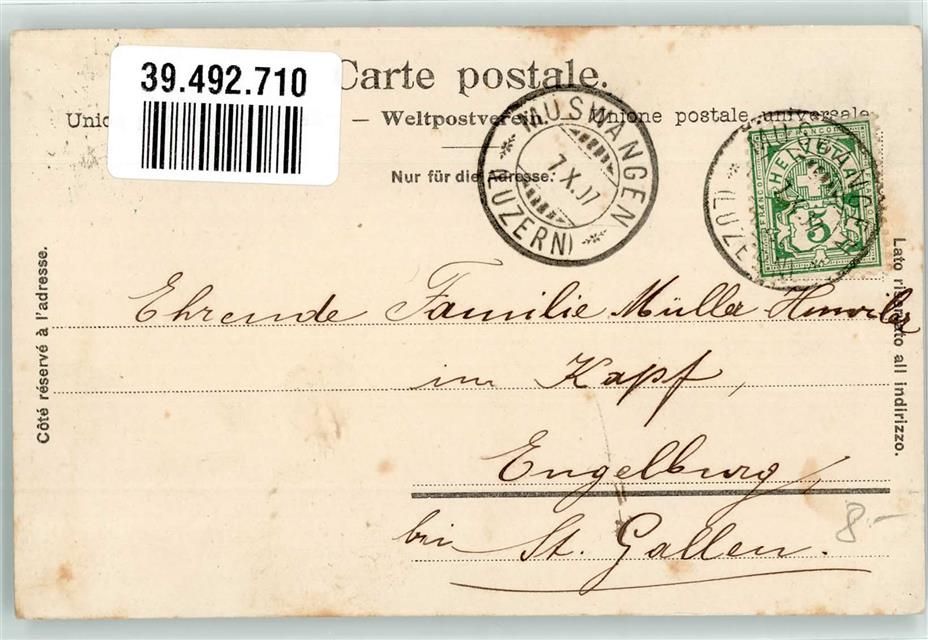 39.492.710
Carte postale.
Unio — Weltpostverein. Unione postale universale
Nur für die Adresse.
MUSWANGEN
7.X.07
(LUZERN)
HELVETIA
5
Côté réservé à l'adresse.
Lato riservato all indirizzo.
Ehrende Familie Müller
im Kapf,
Engelburg,
bei St. Gallen.
8.-